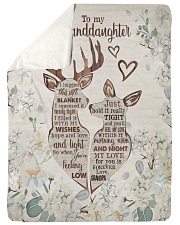 To my
Granddaughter
I hugged
this soft
BLANKET
I squeezed it
really tight
I filled it
WITH MY
WISHES
hope and love
and light
So when
you're
feeling
LOW
Just
hold it really
TIGHT
and you'll
FEEL MY LOVE
WITHIN IT
MORNING, NOON
AND NIGHT
MY LOVE
for you
is
FOREVER
Love,